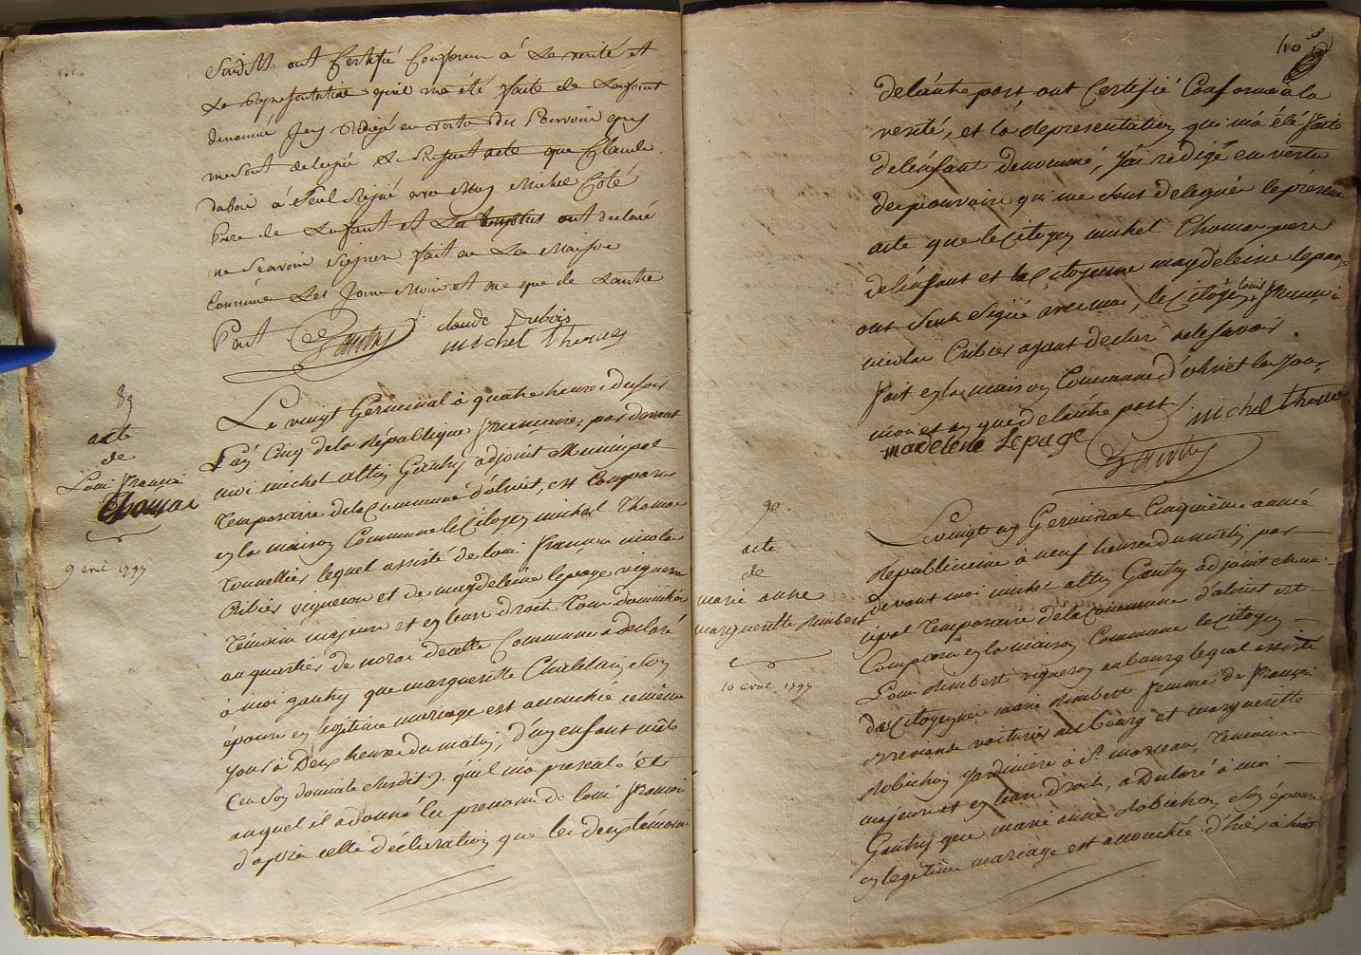 ont Certifié Conforme à La verité et
La Representation qu'il m'a été faite de Lenfant
denommé Jen Redigé en Vertu des Pouvoirs qui
me sont delegué Le Present acte que Claude
dubois à Seul Signé avec Moy Michel
Pere de Lenfant et ont declaré
ne Scavoir Signer fait en La Maison
Commune Les Jour Mois et an que de Lautre
Part Gauthy claude Dubois
michel thomas
89
acte
de
Loui françoi
Thomas
9 avril 1797
Le vingt Germinal à quatre heures du soir
L'an Cinq de la République francoise, par devant
moi michel altin Gauthy adjoint Municipal
Temporaire de la Commune d'olivet, est Comparu
en la maison Commune le Citoyen michel Thomas
Tonnellier lequel assisté de loui françois nicolas
Cribier vigneron et de magdeleine lepage vigneronne
Témoins majeurs et en leurs droits Tous domiciliés
au quartier de de cette Commune a Declaré
à moi gauthy que margueritte Chatelain Son
épouse en légitime mariage est accouchée ce même
jour à Deux heures du matin, d'un enfant mâle
en Son domicile Susdit, qu'il m'a presenté et
auquel il a donné les prenoms de loui françoi
d'après cette déclaration que les deux témoins
110
de lautre part ont Certifié Conforme à la
verité, et la representation qui m'a été faite
de lenfant denommé, J'ai rédigé en vertu
des pouvoirs qui me sont delegués le présent
acte que le Citoyen michel Thomas pere
de lenfant et la Citoyenne magdeleine lepage
ont Seuls Signé avec moi, le Citoyen loui françoi
nicolas Cribier ayant declaré ne le Savoir.
fait en la maison Commune d'olivet les jour,
mois et an que de lautre part michel thomas
madeléne Lepage Gauthy
90
acte
de
marie anne
margueritte Rimbert
10 avril 1797
Le vingt un Germinal Cinquième année
Republicaine à neuf heures du matin, par
devant moi michel altin Gauthy adjoint muni-
cipal Temporaire de la Commune d'olivet est
Comparu en la maison Commune le Citoyen
Loui Rimbert vigneron au bourg lequel assisté
des Citoyennes marie Rimbert femme de françoi
voiturier au bourg et margueritte
Robichon Jardiniere à St marceau, Temoins
majeurs et en leurs Droits, a Declaré à moi
Gauthy que marie anne Robichon Son épouse
en legitime mariage est accouchée d'hier à huit